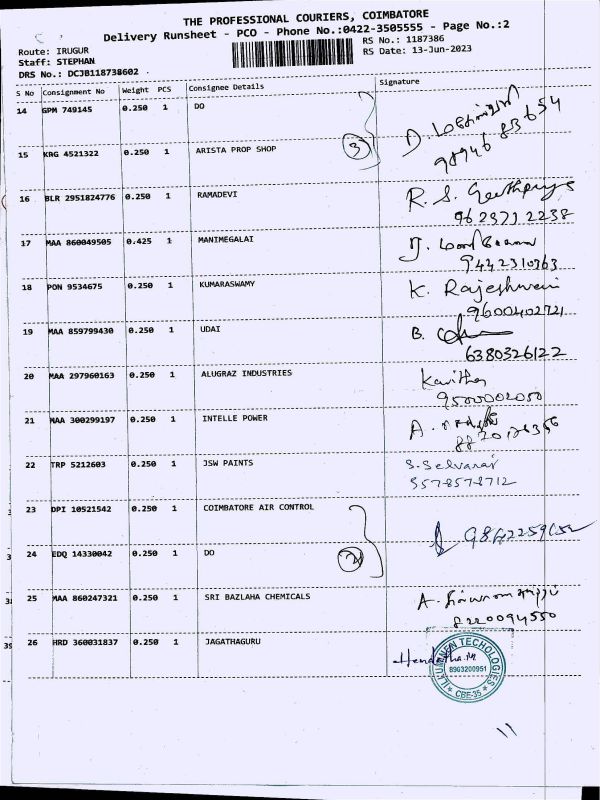 THE PROFESSIONAL COURIERS, COIMBATORE
Delivery Runsheet - PCO - Phone No.:0422-3505555 - Page No.:2
Route: IRUGUR
Staff: STEPHAN
DRS No.: DCJB118738602
RS No.: 1187386
RS Date: 13-Jun-2023
S No Consignment No Weight PCS Consignee Details Signature
14 GPM 749145 0.250 1 DO
3
98946 83654
15 KRG 4521322 0.250 1 ARISTA PROP SHOP
16 BLR 2951824776 0.250 1 RAMADEVI R. S.
962371 2238
17 MAA 860049505 0.425 1 MANIMEGALAI
9442310363
18 PON 9534675 0.250 1 KUMARASWAMY K. Rajeshwari
9600402721
19 MAA 859799430 0.250 1 UDAI B.
6380326122
20 MAA 297960163 0.250 1 ALUGRAZ INDUSTRIES Kavitha
9500002050
21 MAA 300299197 0.250 1 INTELLE POWER A.
22 TRP 5212603 0.250 1 JSW PAINTS S. Selvaraj
23 DPI 10521542 0.250 1 COIMBATORE AIR CONTROL
24 EDQ 14330042 0.250 1 DO
2
25 MAA 860247321 0.250 1 SRI BAZLAHA CHEMICALS A.
8220094550
26 HRD 360031837 0.250 1 JAGATHAGURU
8903200951
CBE-35
11